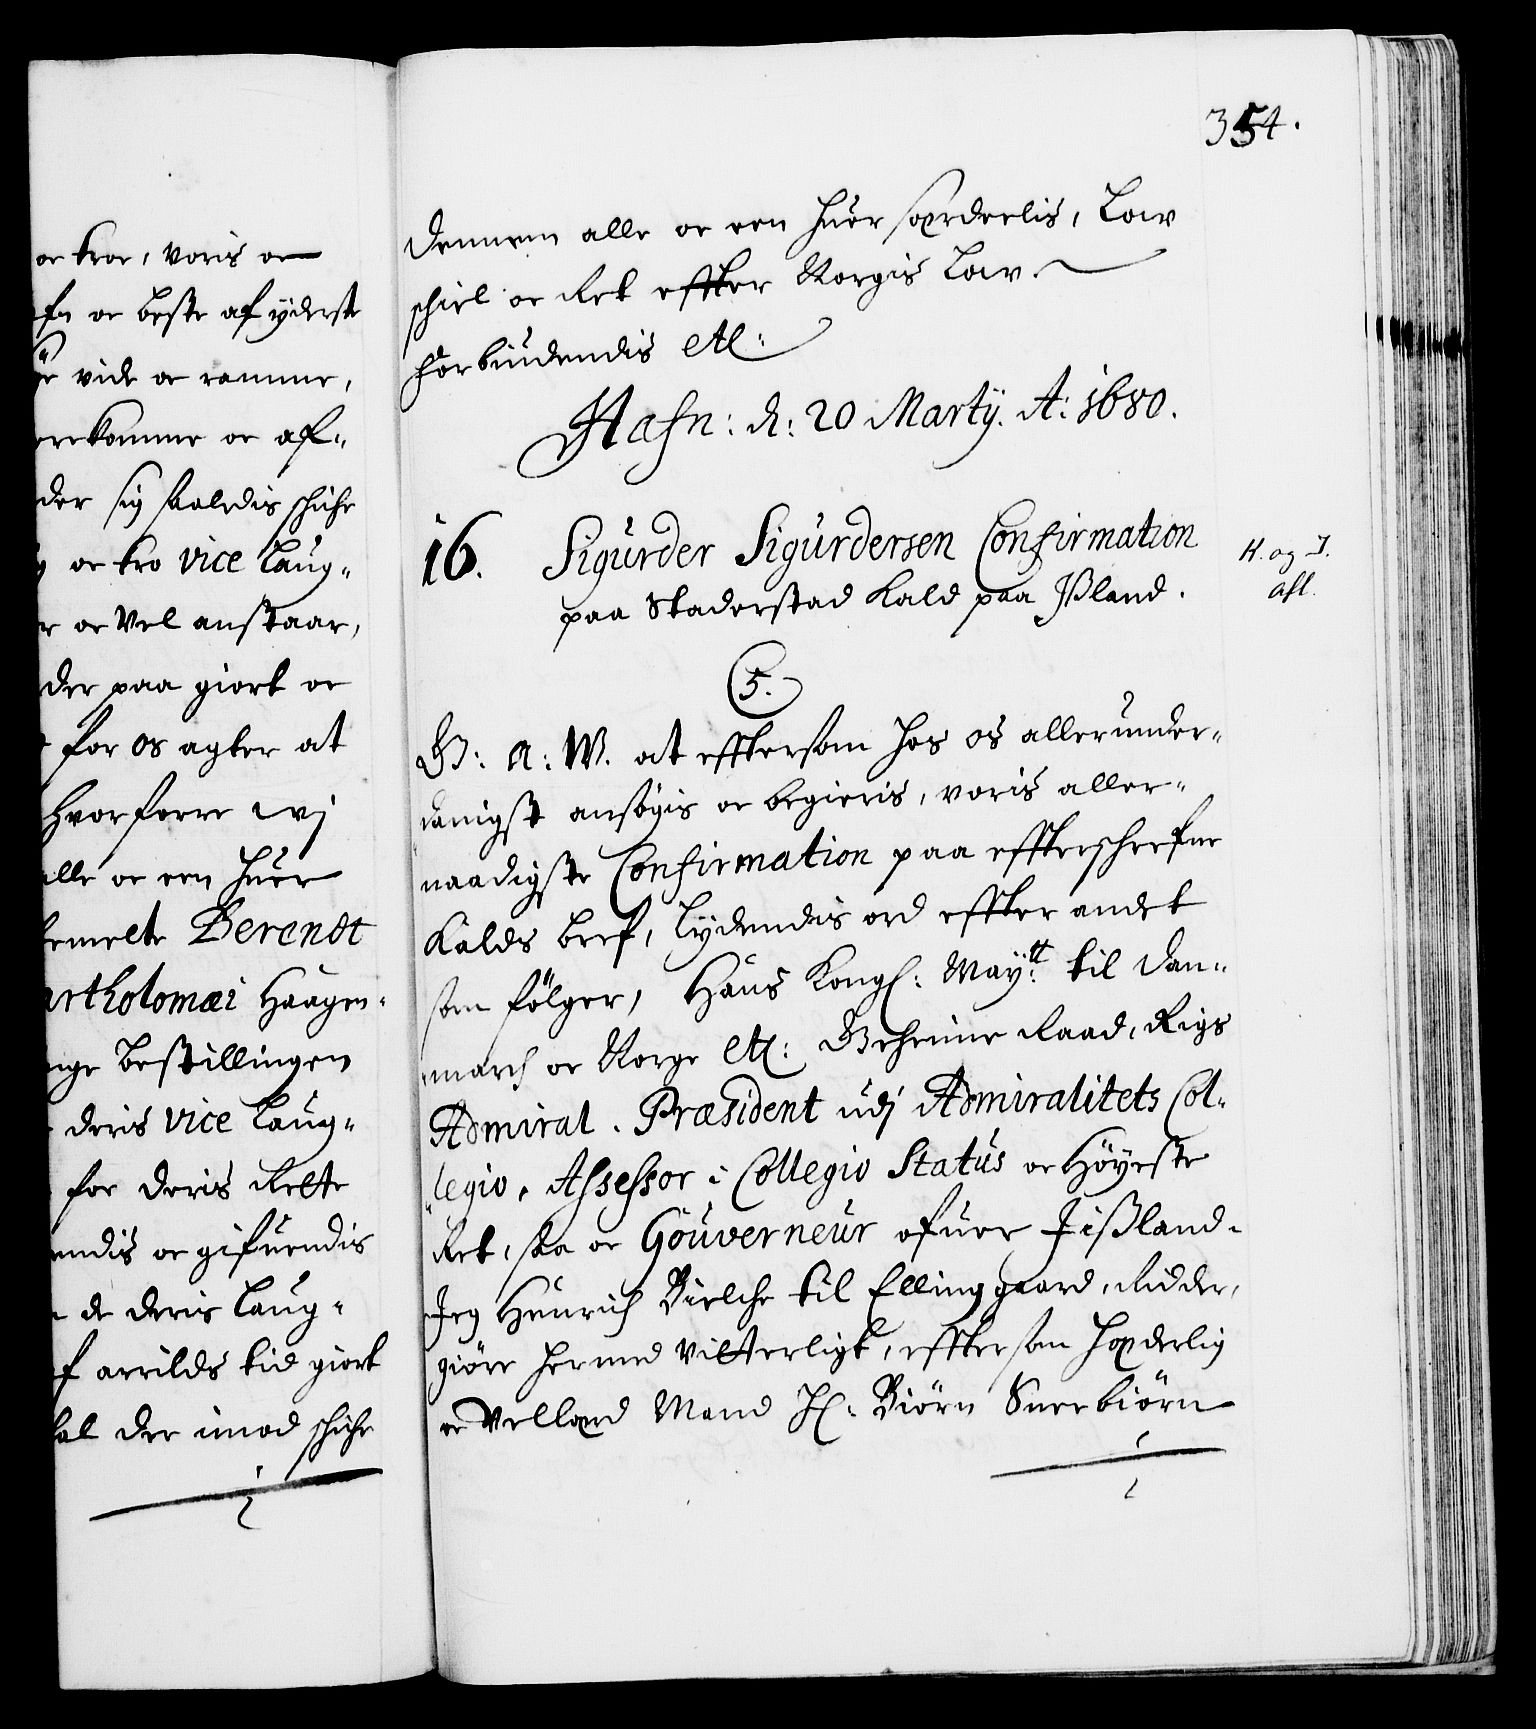 oc troe, voris oc
fn oc beste af yderste
vide oc ramme,
orekomme oc af-
der sig saaledis schiche
oc tro vice Laug-
r oc vel anstaar,
der paa giort oc
for os agter at
hvorforre wj
alle oc een huer
bemelte Berendt
artholomæi Haagen-
nge bestillingen
deris vice Laug-
for deris Rette
endis oc gifuendis
de deris Laug-
f arrilds tid giort
kal der imod schiche
354.
dennem alle oc een huer særdeelis, Low
schiel oc Ret effter Norgis Low.
Forbiudendis etc:
Hafn: d: 20 Martij. A: 1680.
16. Sigurder Sigurdersen Confirmation
paa Staderstad Kald paa Ißland.
K. og I.
afl.
5.
G: A: W. at efftersom hos os allerunder-
danigst ansøgis oc begieris, voris aller-
naadigste Confirmation paa effterschrefne
Kalds bref, lydendis ord effter andet
som fölger, Hans Kongl: May:tt til Dan-
march oc Norge etc: Geheime Raad, Rigs
Admiral. Præsident udj Admiralitets Col-
legio, Assessor i Collegio Status oc Höyeste
Ret, saa oc Gouverneur ofuer Jißland.
Jeg Henrich Bielche til Ellinggaard, Ridder,
giöre hermed vitterligt, efftersom hæderlig
oc Vellærd Mand Hr: Biörn Sneebiörn